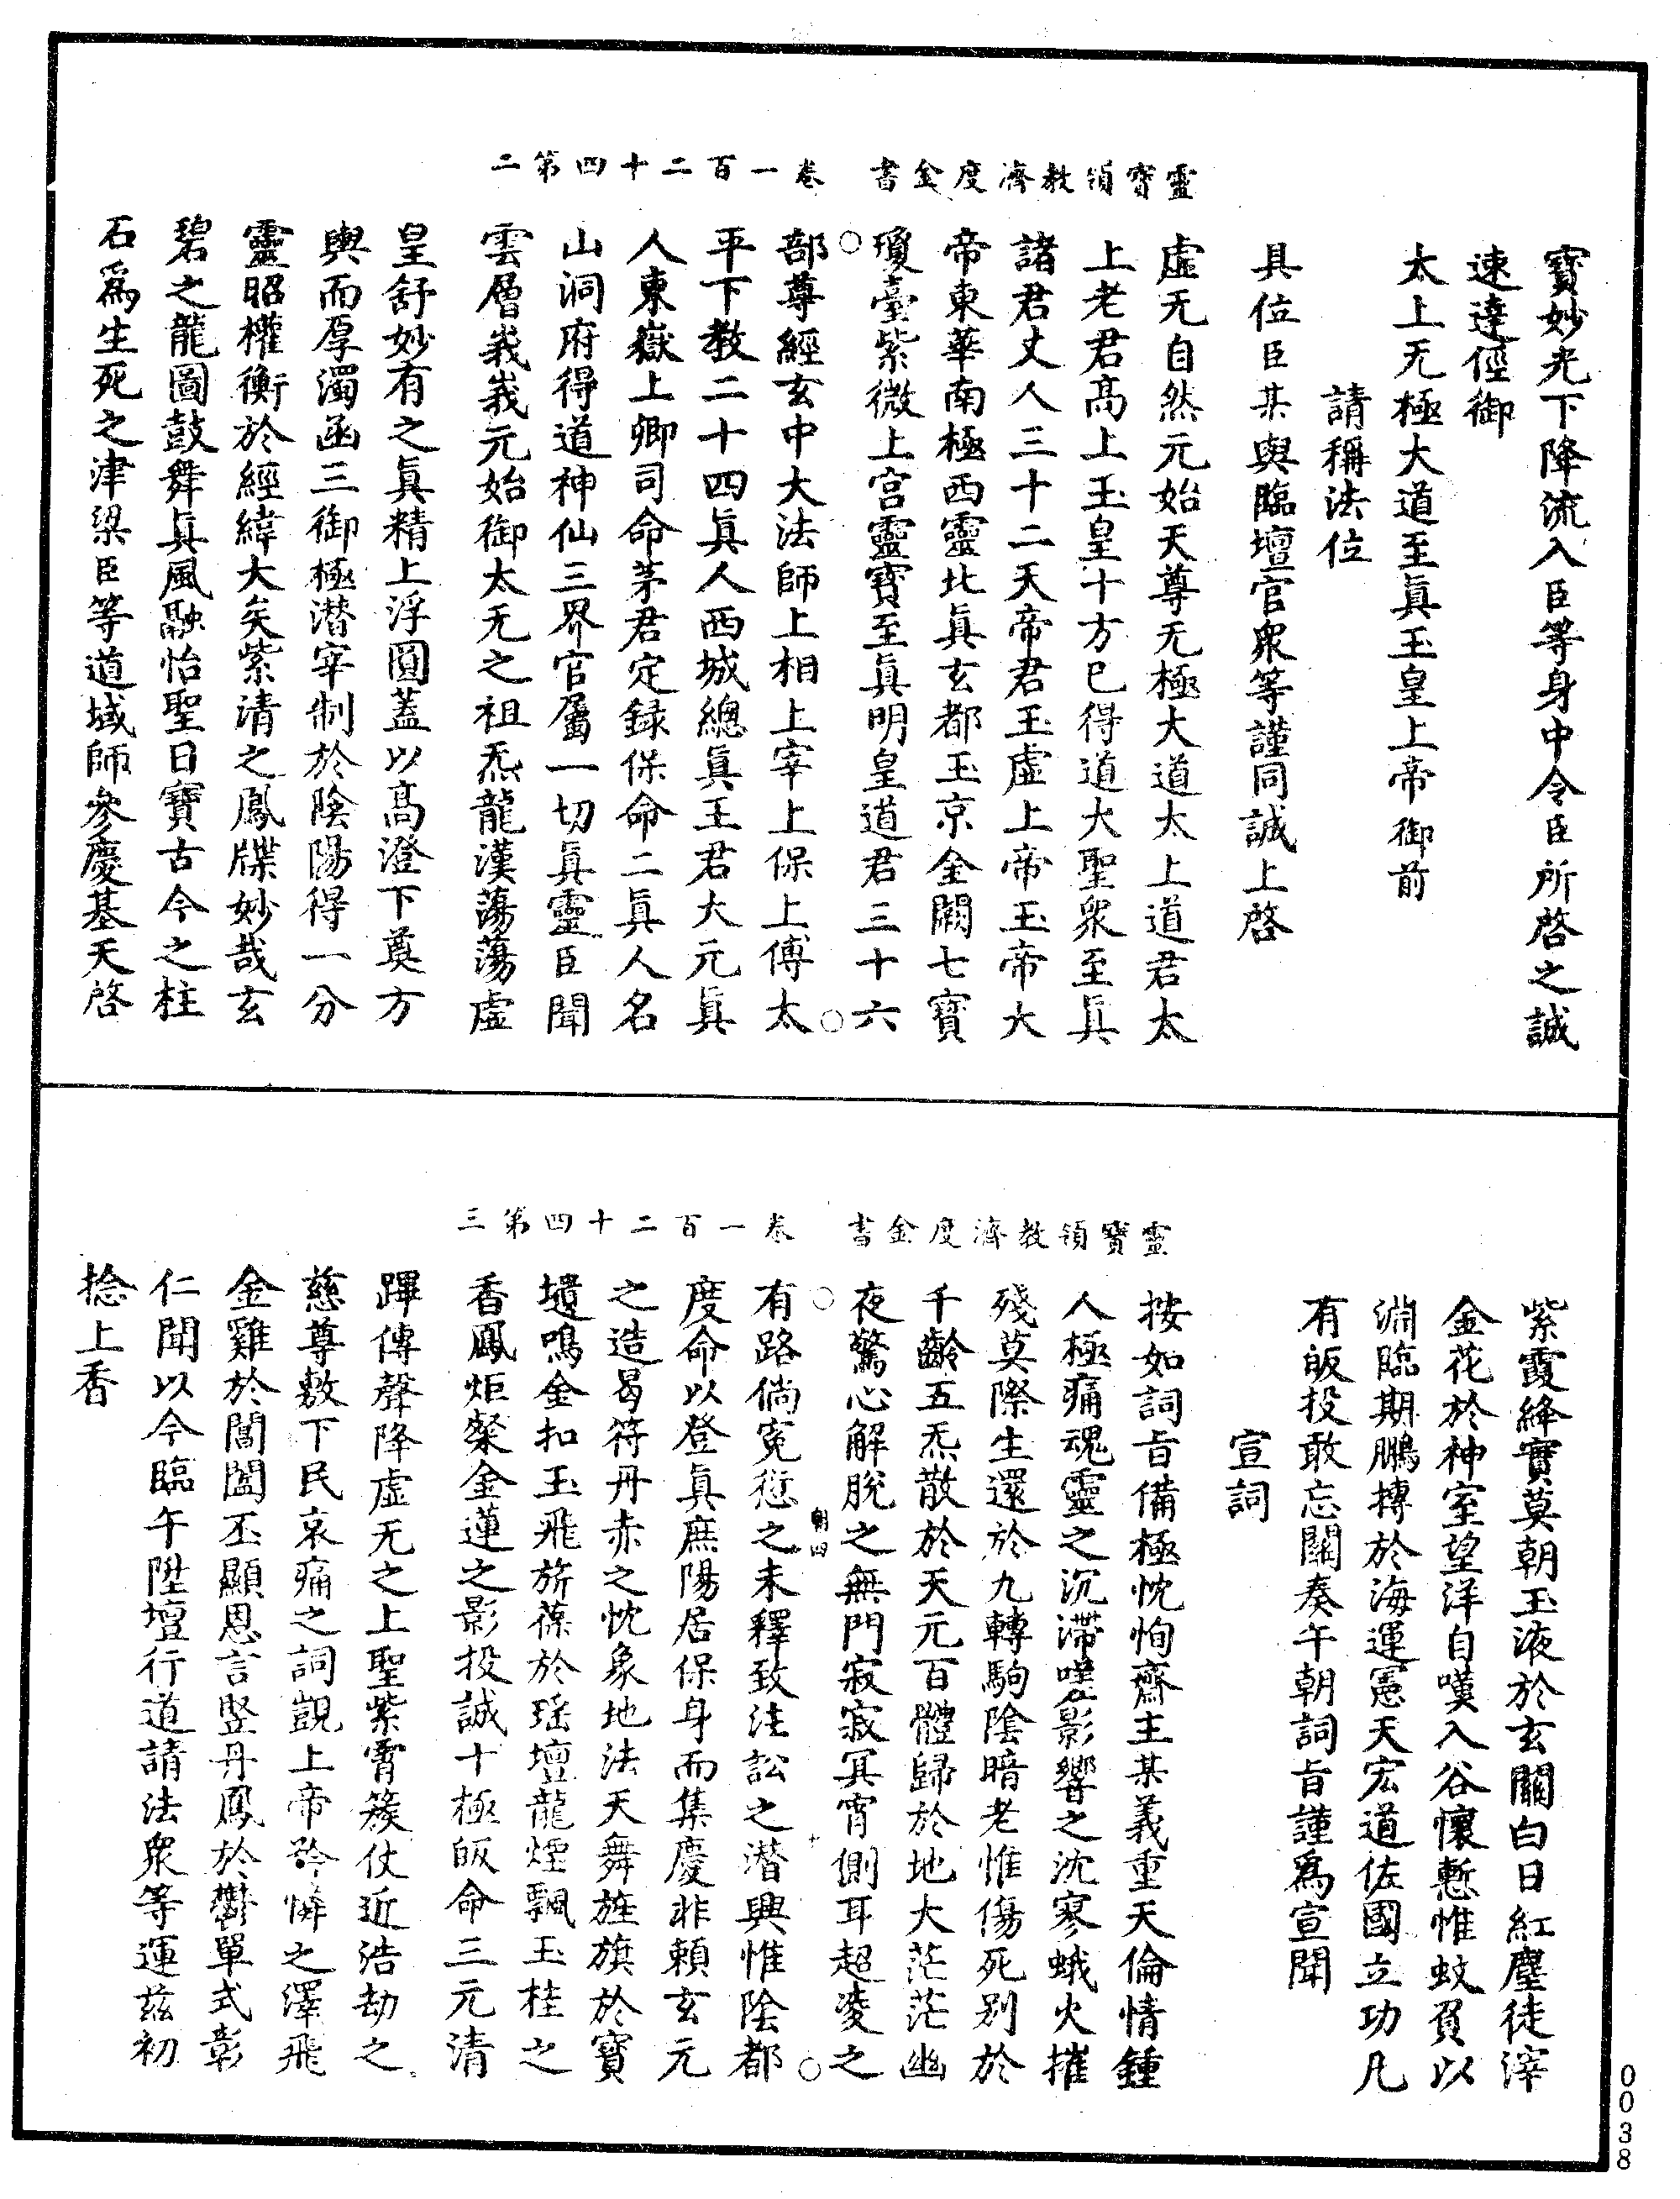 寶妙光下降流入臣等身中令臣所啓之誠
速達徑御
太上无極大道至眞玉皇上帝御前
請稱法位
具位臣某與臨壇官衆等謹同誠上啓
靈寶領教濟度金書 卷一百二十四第二
虛无自然元始天尊无極大道太上道君太
上老君高上玉皇十方已得道大聖衆至眞
諸君丈人三十二天帝君玉虛上帝玉帝大
帝東華南極西靈北眞玄都玉京金闕七寶
瓊臺紫微上宮靈寶至眞明皇道君三十六
部尊經玄中大法師上相上宰上保上傅太
平下教二十四眞人西城總眞王君大元眞
人東嶽上卿司命茅君定録保命二眞人名
山洞府得道神仙三界官屬一切眞靈臣聞
雲層峩峩元始御太无之祖炁龍漢蕩蕩虛
皇舒妙有之眞精上浮圓蓋以高澄下奠方
輿而厚濁函三御極潜宰制於陰陽得一分
靈昭權衡於經緯大矣紫清之鳳牒妙哉玄
碧之龍圖鼓舞眞風融怡聖日寶古今之柱
石爲生死之津梁臣等道域師參慶基天啓
紫霞絳實莫朝玉液於玄關白日紅塵徒滓
金花於神室望洋自嘆入谷懷慙惟蚊負以
淵臨期鵬摶於海運憲天宏道佐國立功凡
有皈投敢忘關奏午朝詞旨謹爲宣聞
宣詞
靈寶領教濟度金書 卷一百二十四第三
按如詞旨備極忱恂齋主某義重天倫情鍾
人極痛魂靈之沉滯嘆影響之沈寥蛾火摧
殘莫際生還於九轉駒陰暗老惟傷死別於
千齡五炁散於天元百體歸於地大茫茫幽
夜驚心解脫之無門寂寂冥宵側耳超凌之
有路倘寃愆之未釋致注訟之潜興惟陰都
度命以登眞庶陽居保身而集慶非頼玄元
之造曷符丹赤之忱象地法天舞旌旗於寶
壝鳴金扣玉飛旂葆於瑶壇龍煙飄玉桂之
香鳳炬粲金蓮之影投誠十極皈命三元清
蹕傳聲降虛无之上聖紫霄簇仗近浩劫之
慈尊敷下民哀痛之詞覬上帝矜憐之澤飛
金雞於閶闔丕顯恩言竪丹鳳於欝單式彰
仁聞以今臨午陞壇行道請法衆等運兹初
捻上香
0038